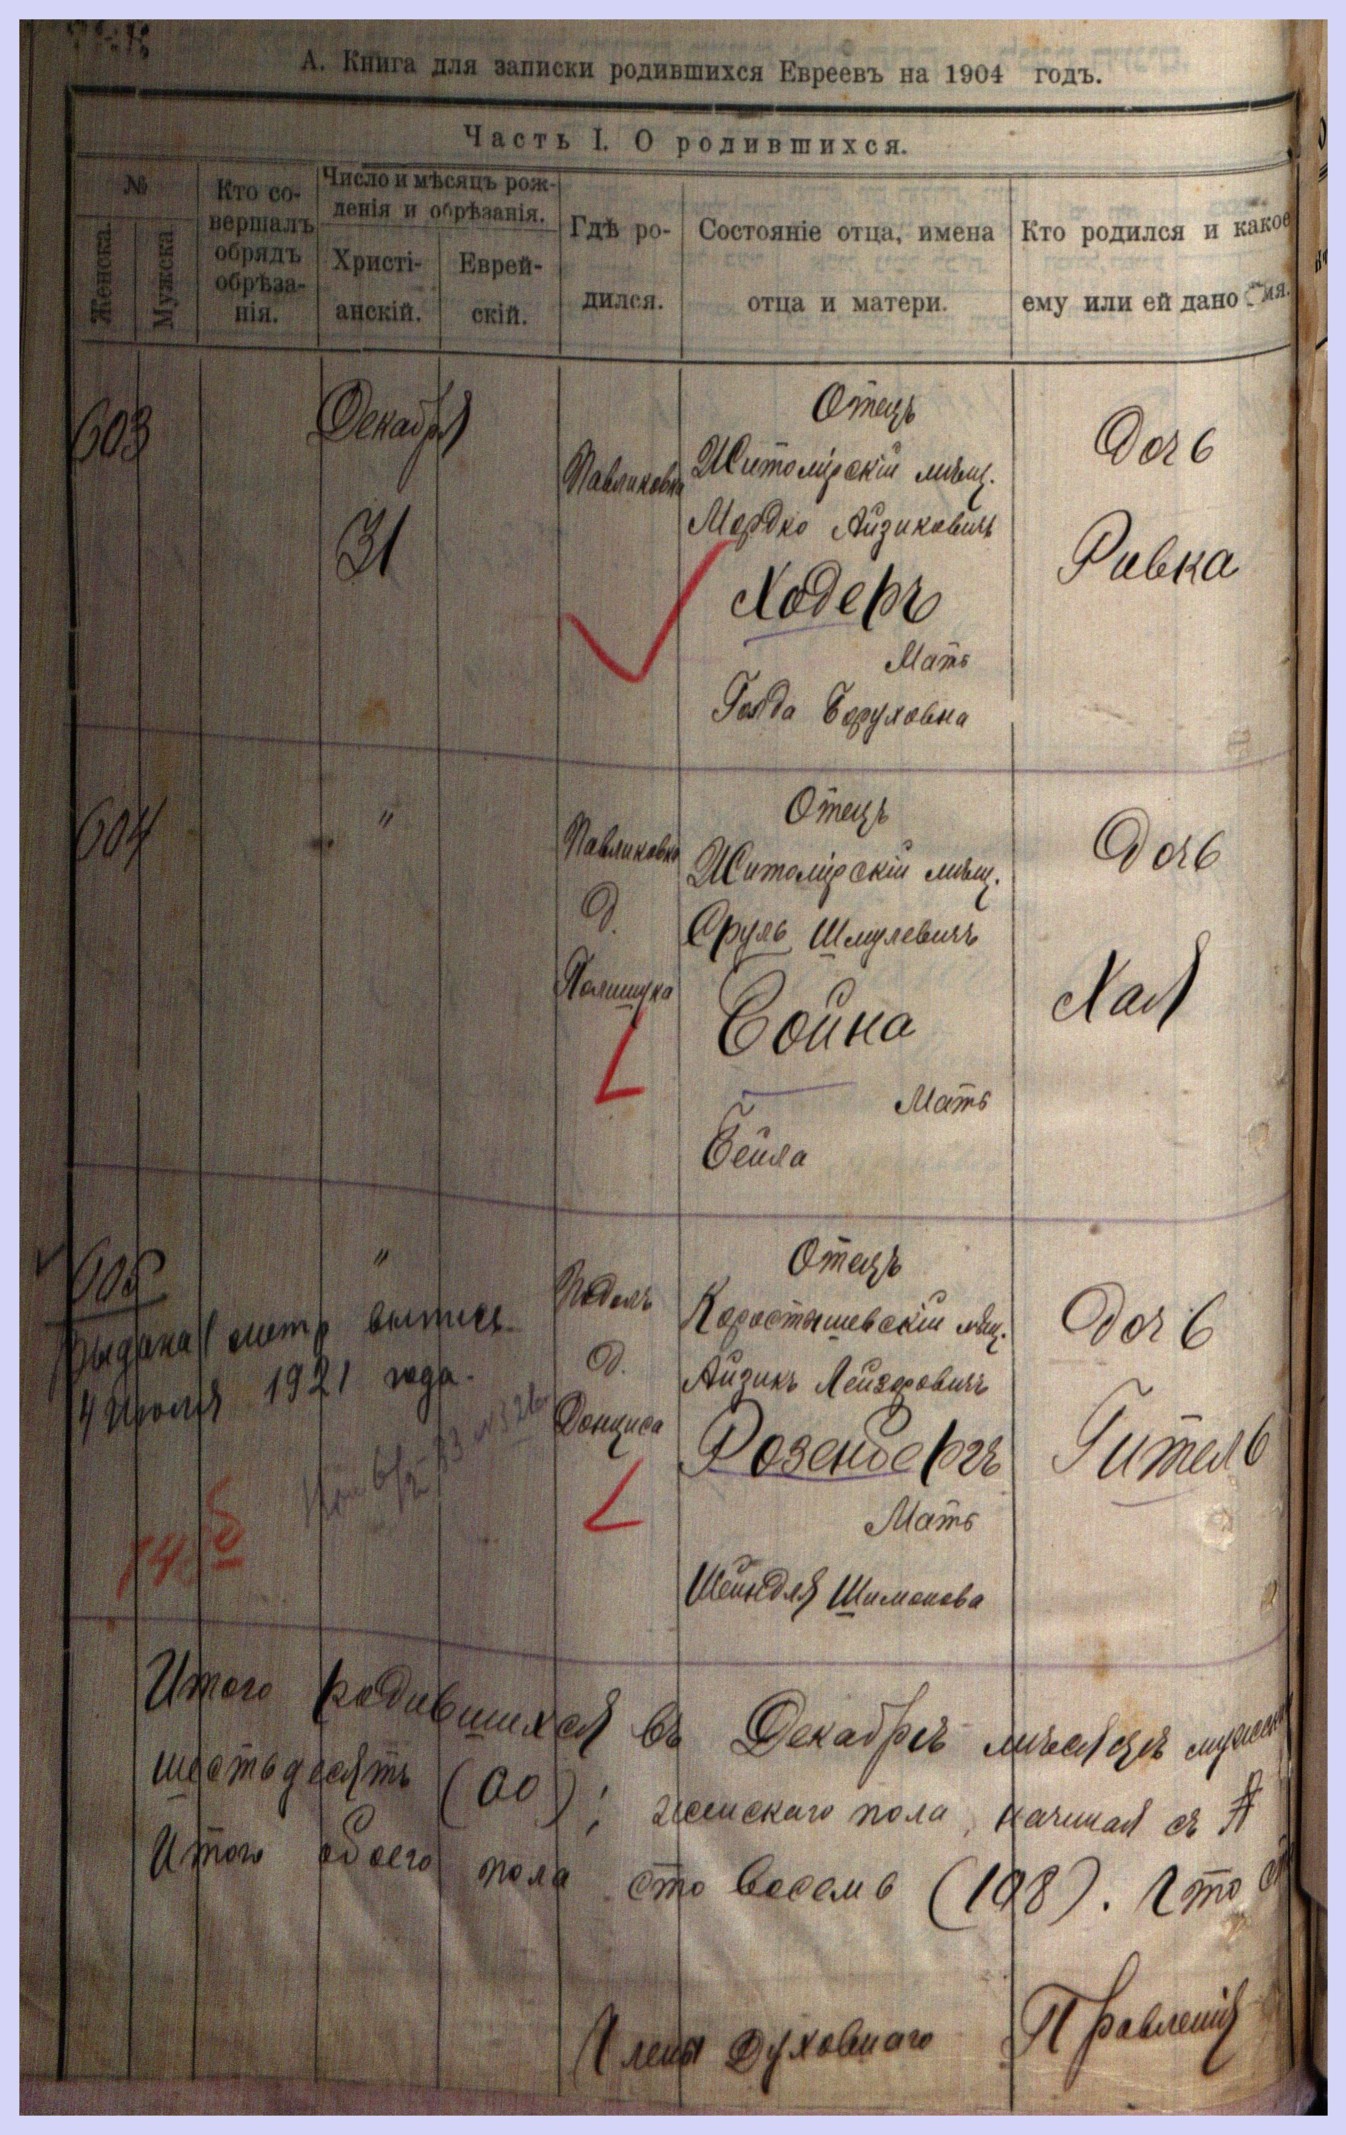 А. Книга для записки родившихся Евреевъ на 1904 годъ.
Часть I. О родившихся.
№
Женска.
Мужска
Кто со-
вершалъ
обрядъ
обрѣза-
нія.
Число и мѣсяцъ рож-
денія и обрѣзанія.
Христі-
анскій.
Еврей-
скій.
Гдѣ ро-
дился.
Состояніе отца, имена
отца и матери.
Кто родился и какое
ему или ей дано
603
Декабря
31
Павликовка
Отецъ
Житомірскій мѣщ.
Мордко Айзиковичъ
Ходеръ
Мать
Голда Боруховна
Дочь
Ривка
604
"
Павликовка
д.
Полищука
Отецъ
Житомірскій мѣщ.
Сруль Шмулевичъ
Бойна
Мать
Бейла
Дочь
Хая
605
"
Выдана метр выпись
4 Июля 1921 года.
Подолъ
д.
Донциса
Отецъ
Коростышевскій мѣщ.
Айзикъ Лейзоровичъ
Розенбергъ
Мать
Шейндля Шимонова
Дочь
Гитель
Итого родившихся въ Декабрѣ мѣсяцѣ
шестьдесятъ (60); женскаго пола, начиная съ
Итого обоего пола сто восемь (108). Что
Члены Духовнаго Правленія